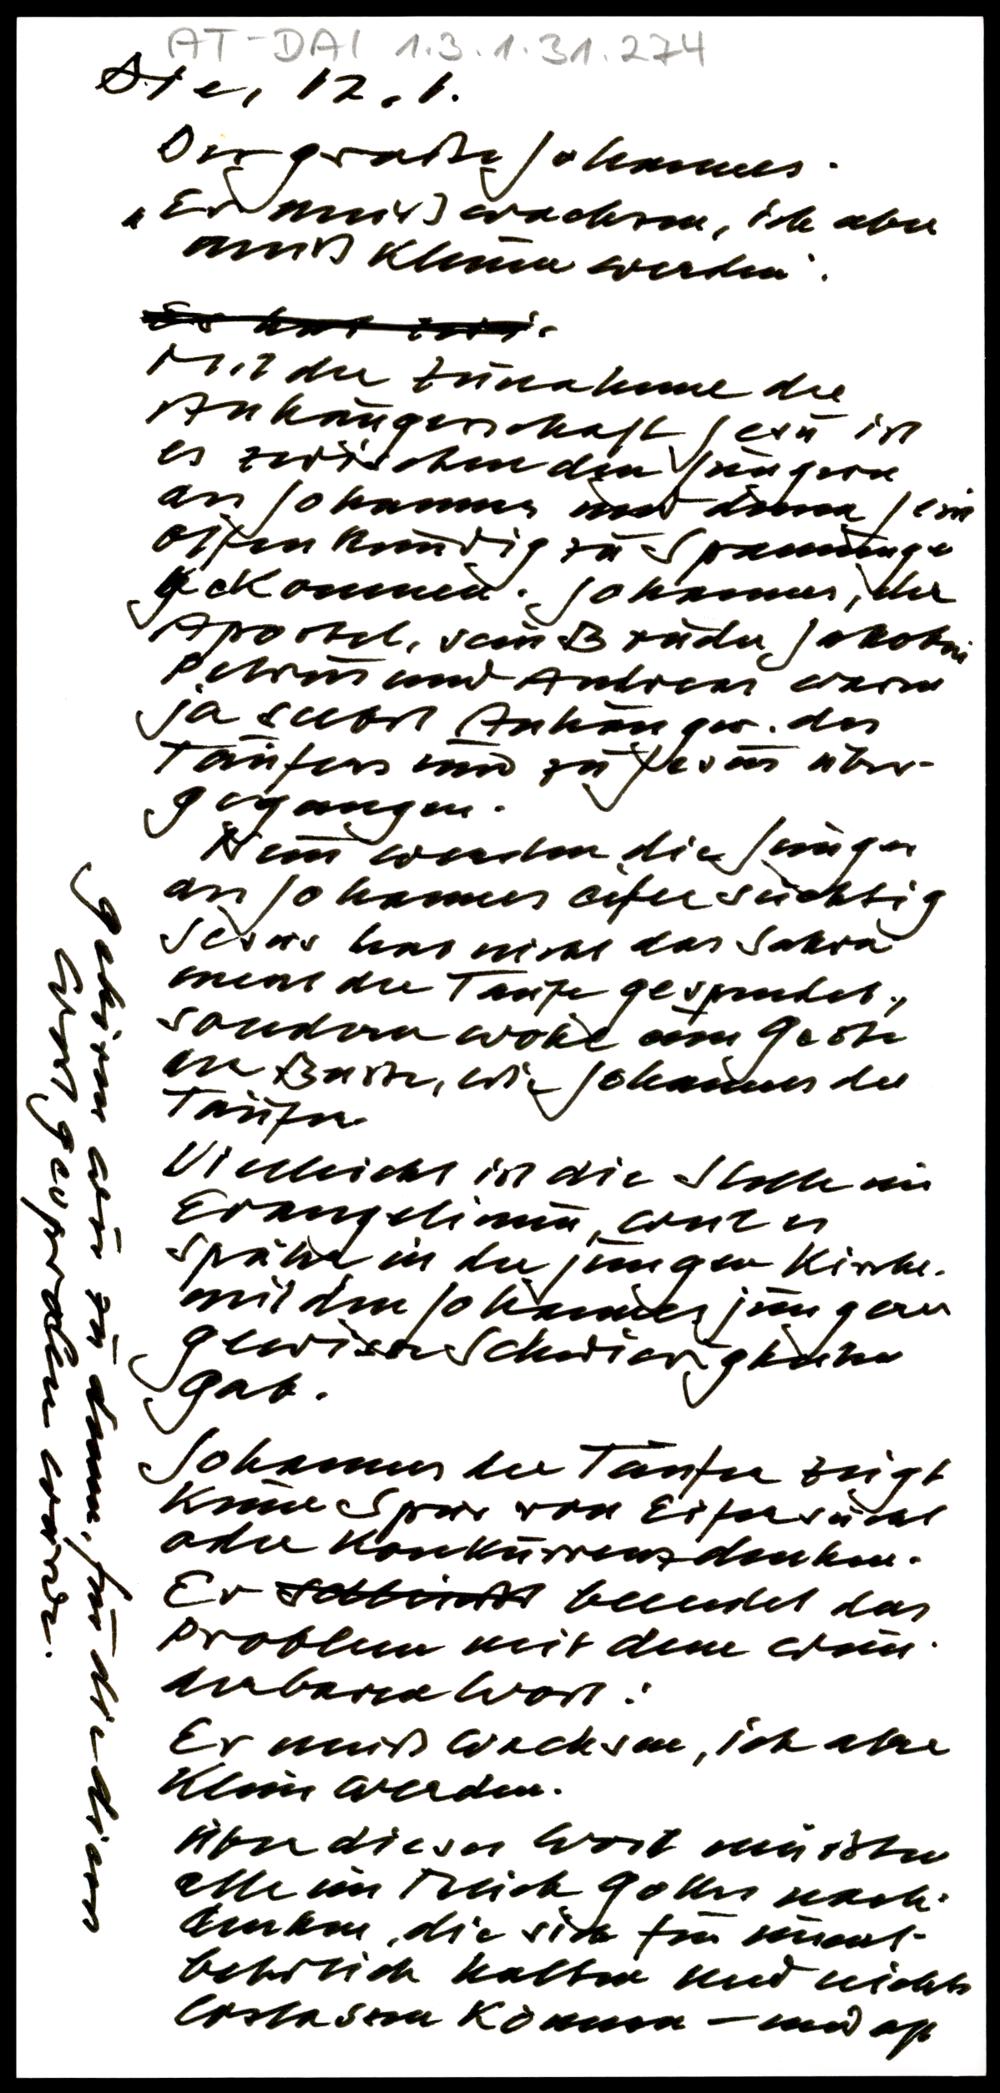 AT-DAI 1.3.1.31.274
12.1.
Der große Johannes.
„Er muß wachsen, ich aber
muß kleiner werden".
Es hat
Mit der Zunahme der
Anhängerschaft Jesu ist
es zwischen den Jüngern
des Johannes und denen Jesu
offenkundig zu Spannungen
gekommen. Johannes, der
Apostel, sein Bruder Jakobus
Petrus und Andreas waren
ja selbst Anhänger des
Täufers und zu Jesus über-
gegangen.
Nun werden die Jünger
des Johannes eifersüchtig
Jesus hat nicht das Sakra
ment der Taufe gespendet,
sondern wohl eine Geste
der Buße, wie Johannes der
Täufer.
Vielleicht ist die Stelle im
Evangelium, weil es
später in der jungen Kirche
mit den Johannesjüngern
gewisse Schwierigkeiten
gab.
Johannes der Täufer zeigt
keine Spur von Eifersucht
oder Konkurrenzdenken.
Er beendet das
Problem mit dem wun
derbaren Wort:
Er muß wachsen, ich aber
klein werden.
Über dieses Wort müßten
alle im Reich Gottes nach-
denken, die sich für unent-
behrlich halten und nichts
loslassen können – und oft
gehören wir zu denen, für die dieses
Wort gesprochen wurde.